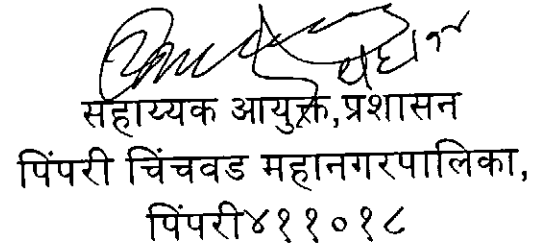 सहाय्यक आयुक्त,प्रशासन
पिंपरी चिंचवड महानगरपालिका,
पिंपरी४११०१८